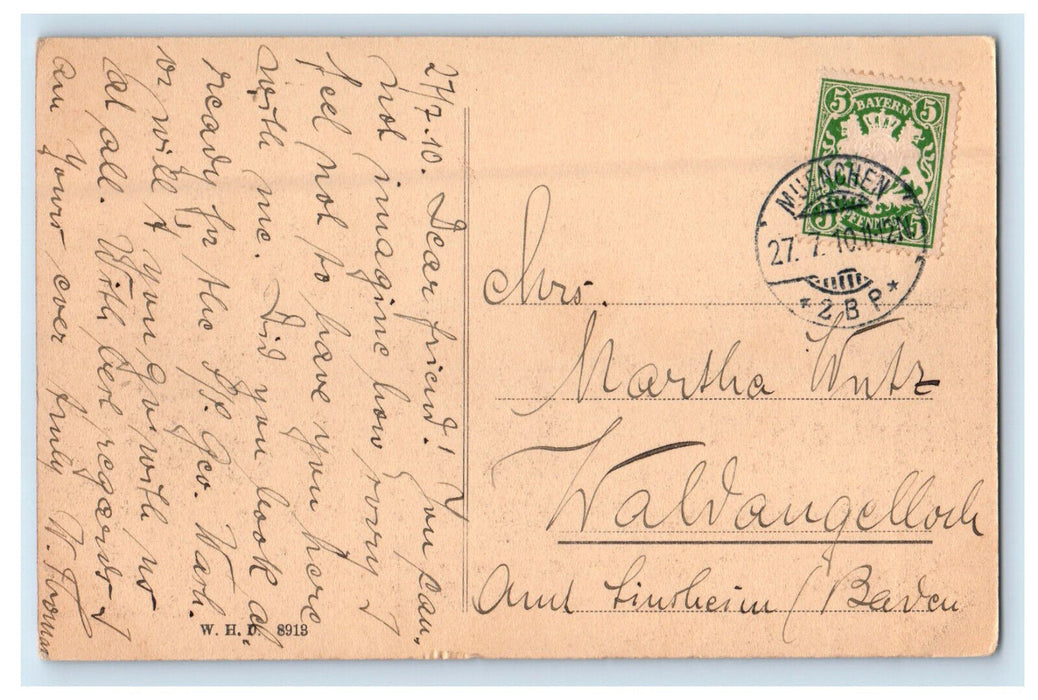 27/7.10. Dear friend! You can,
not imagine how sorry I
feel not to have you here
with me. Did you book al,
ready for the SS. Geo. Wash.
or will you go with us
at all. With best regards I
am Yours ever truly W. Thomas
W. H. D. 8913
5 BAYERN 5
5 PFENNIG 5
MUENCHEN 7
27. 7. 10. N
* 2 B P *
Mrs.
Martha Wutz
Waldangelloch
Amt Sinsheim / Baden